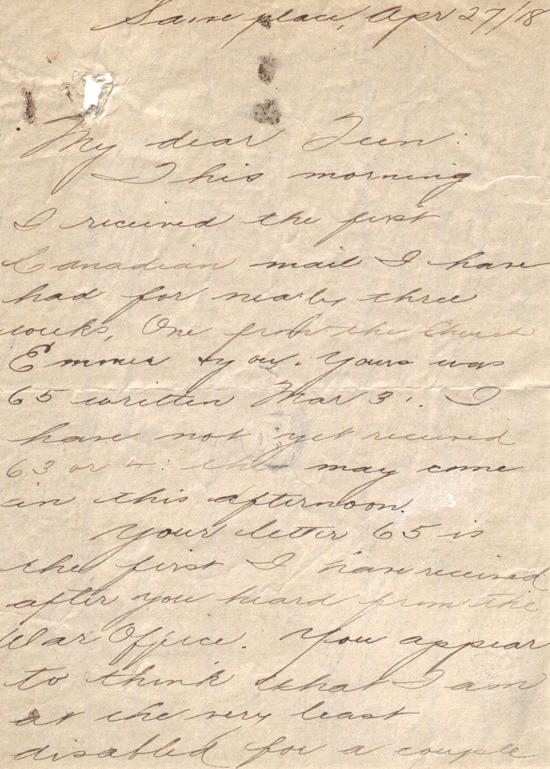 Same place, Apr 27/18
My dear Teen:
This morning
I received the first
Canadian mail I have
had for nearly three
weeks, One from the Church
Emmer & you. Yours was
65 written Mar 31. I
have not yet received
63 or 4: they may come
in this afternoon.
Your letter 65 is
the first I have received
after you heard from the
War Office. You appear
to think that I am
at the very least
disabled for a couple